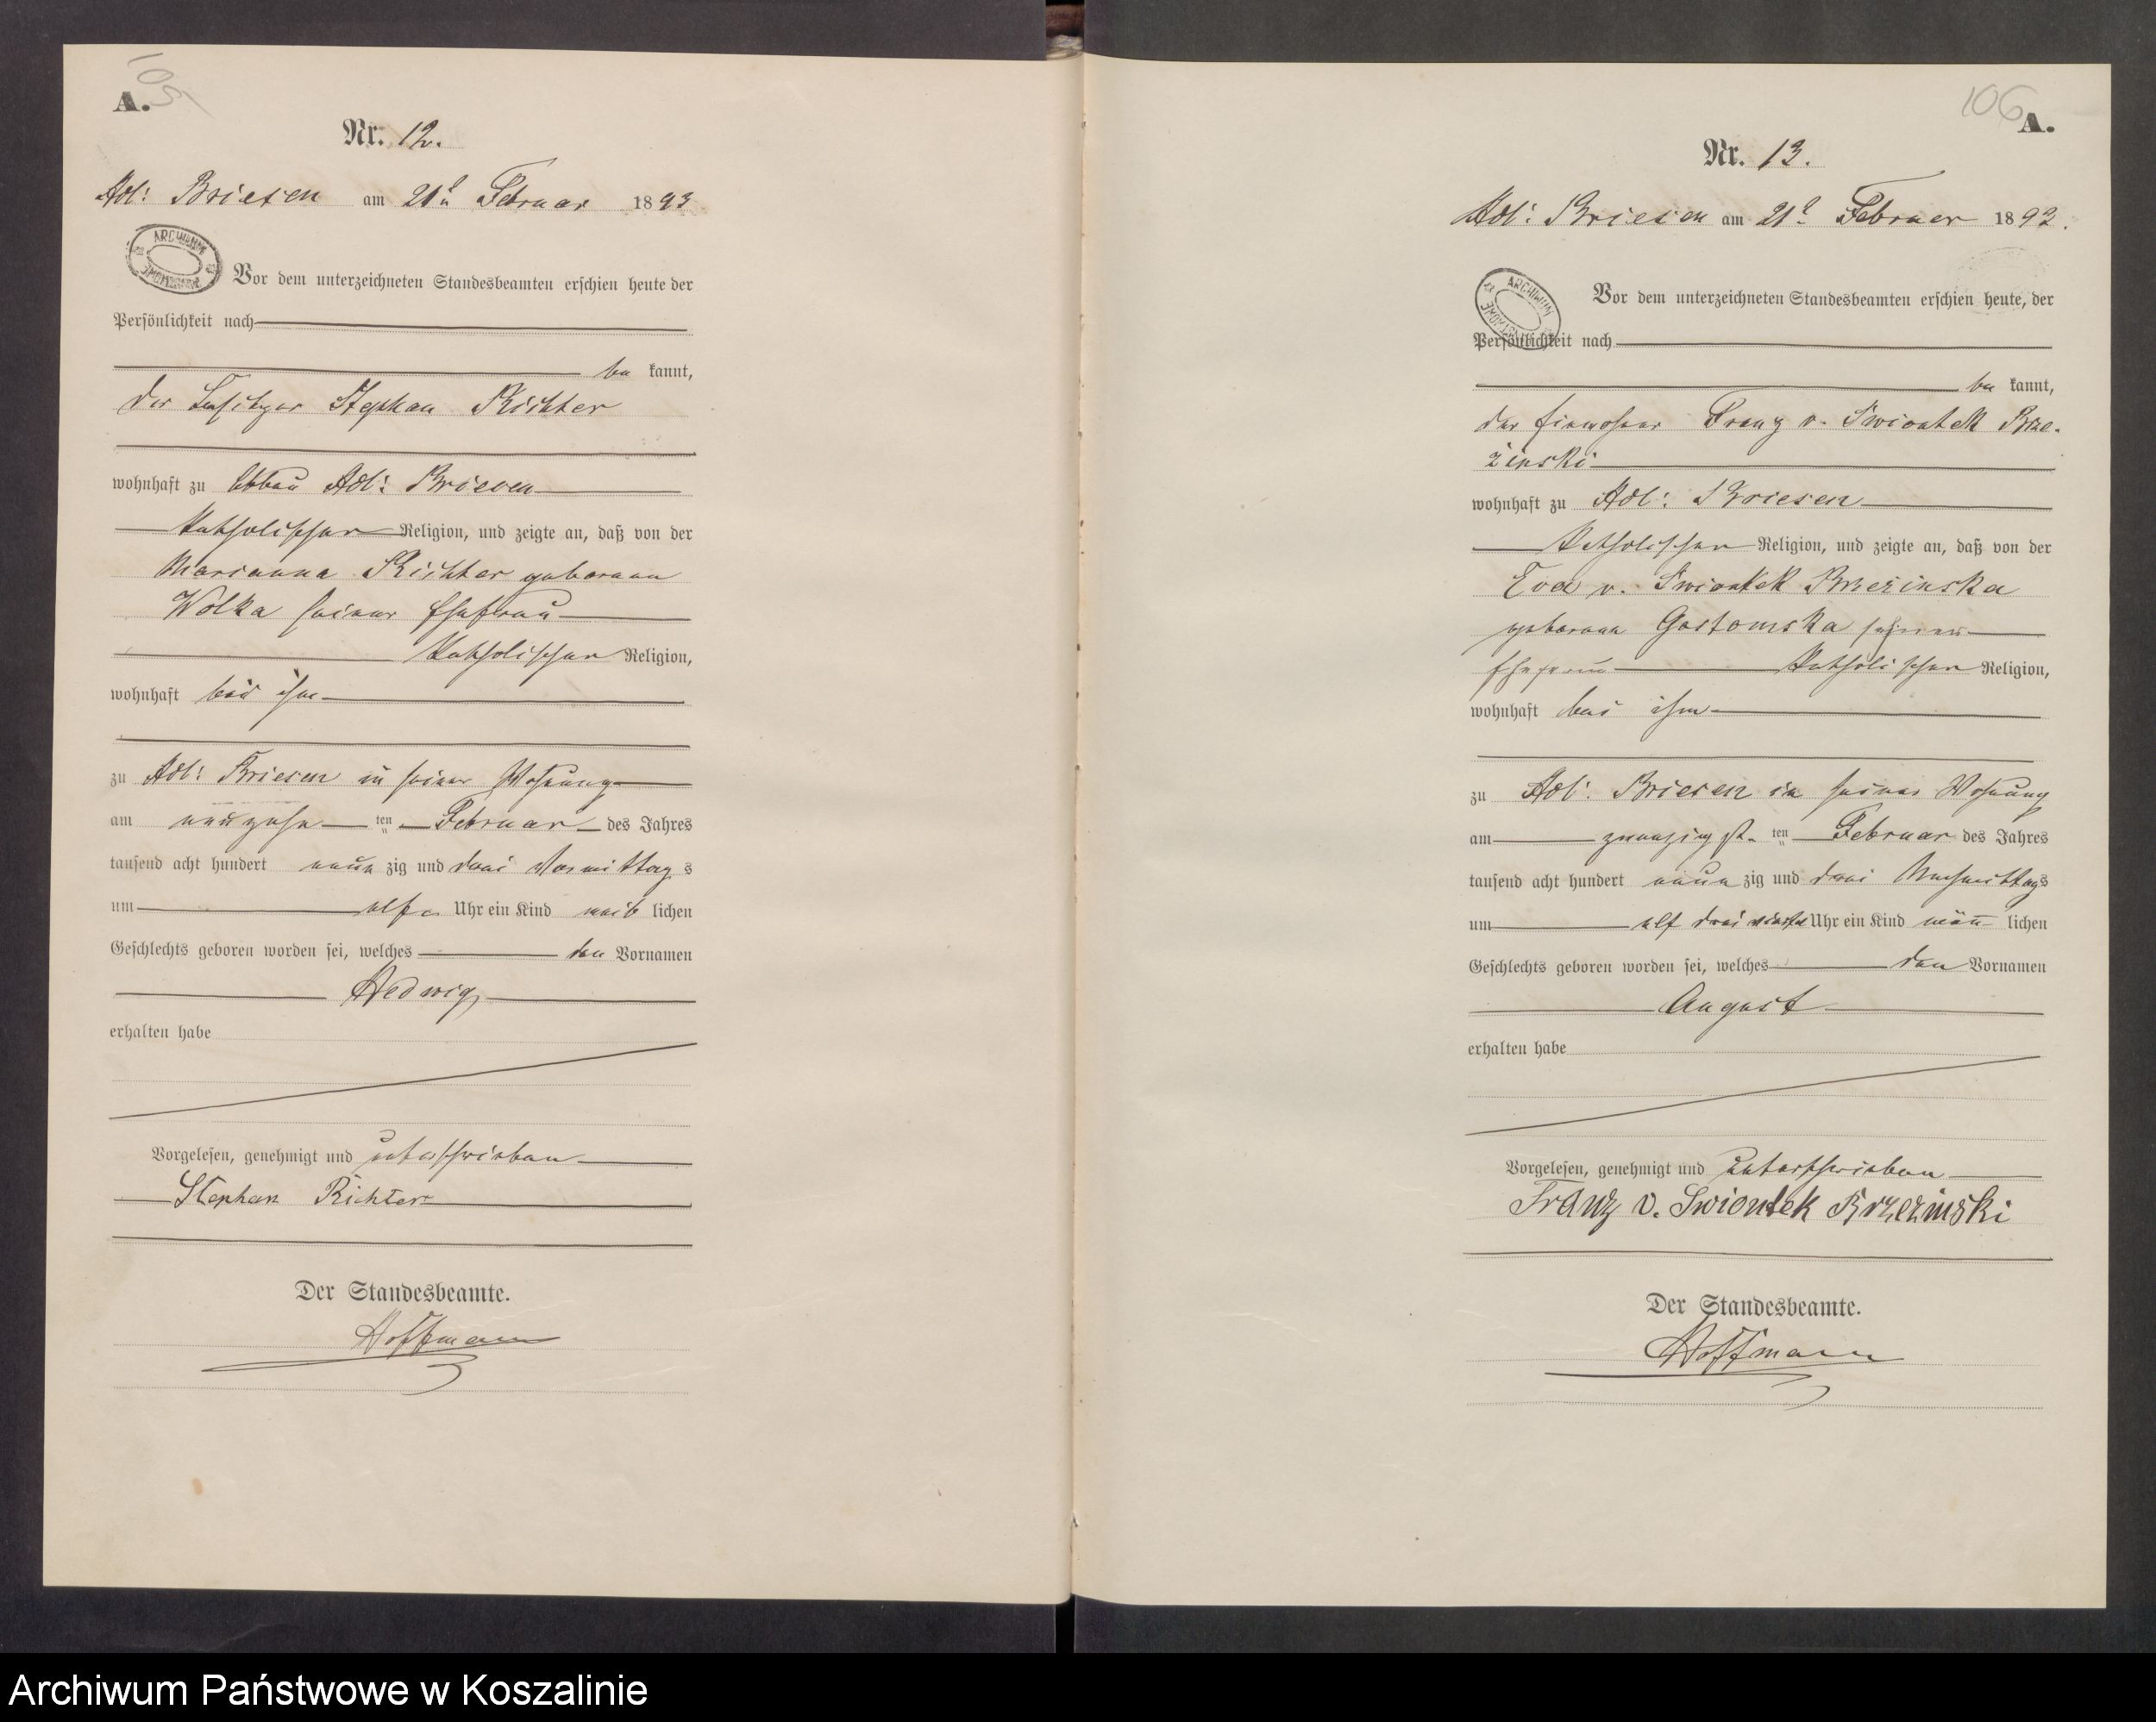 105
A.
Nr. 12.
Adl: Briesen am 21t. Februar 1893
ARCHIWUM
Vor dem unterzeichneten Standesbeamten erschien heute der
Persönlichkeit nach
be kannt,
der Besitzer Stephan Richter
wohnhaft zu Abbau Adl: Briesen
katholischer Religion, und zeigte an, daß von der
Marianna Richter geborene
Wolka seiner Ehefrau
katholischer Religion,
wohnhaft bei ihm
zu Adl: Briesen in seiner Wohnung
am neunzehn ten Februar des Jahres
tausend acht hundert neun zig und drei Vormittag s
um elf Uhr ein Kind weib lichen
Geschlechts geboren worden sei, welches den Vornamen
Hedwig
erhalten habe
Vorgelesen, genehmigt und unterschrieben
Stephan Richter
Der Standesbeamte.
Hoffmann
106
A.
Nr. 13.
Adl: Briesen am 21t. Februar 1893.
ARCHIWUM
Vor dem unterzeichneten Standesbeamten erschien heute, der
Persönlichkeit nach
be kannt,
der Einwohner Franz v. Swiontek Brze-
zinski
wohnhaft zu Adl: Briesen
katholischer Religion, und zeigte an, daß von der
Eva v. Swiontek Brzezinska
geborene Gostomska seiner
Ehefrau katholischer Religion,
wohnhaft bei ihm
zu Adl: Briesen in seiner Wohnung
am zwanzigst ten Februar des Jahres
tausend acht hundert neun zig und drei Nachmittags
um elf drei viertel Uhr ein Kind männ lichen
Geschlechts geboren worden sei, welches den Vornamen
August
erhalten habe
Vorgelesen, genehmigt und unterschrieben
Franz v. Swiontek Brzezinski
Der Standesbeamte.
Hoffmann
Archiwum Państwowe w Koszalinie